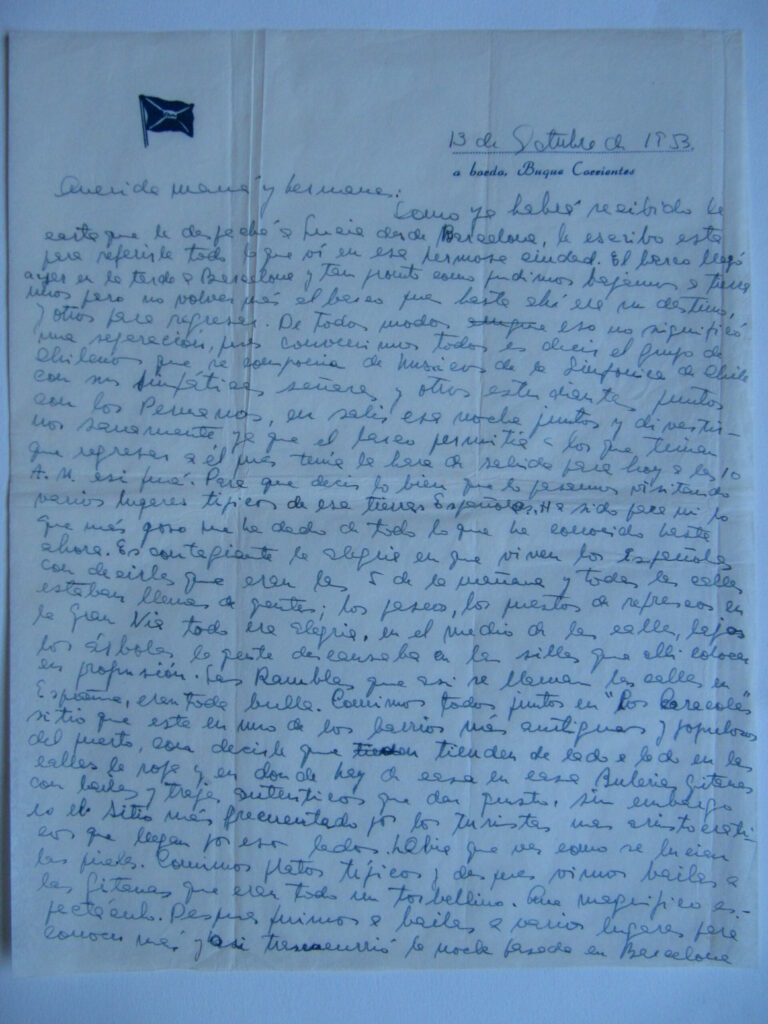 13 de Octubre de 1953.
a bordo, Buque Corrientes
Querida mamá y hermanas:
Como ya habrá recibido la
carta que le despaché a Lucia desde Barcelona, le escribo esta
para referirle todo lo que vi en esa hermosa ciudad. El barco llegó
ayer en la tarde a Barcelona y tan pronto como pudimos bajamos a tierra
unos para no volver más al barco pues hasta ahí era su destino,
y otros para regresar. De todos modos eso no significó
una separación, pues convinimos todos es decir el grupo de
chilenos que se componia de Músicos de la Sinfonica de Chile
con sus simpáticas señoras, y otros estudiantes juntos
con los Peruanos, en salir esa noche juntos y divertir-
nos sanamente, ya que el barco permitia a los que tenian
que regresar a él pues tenia la hora de salida para hoy a las 10
A.M. asi fué. Para que decir lo bien que lo pasamos visitando
varios lugares tipicos de esa tierras Españolas. Ha sido para mi lo
que más gozo me ha dado de todo lo que he conocido hasta
ahora. Es contagiante la alegria en que viven los Españoles
con decirle que eran las 5 de la mañana y todas las calles
estaban llenas de gentes; los paseos, los puestos de refrescos en
la Gran Via todo era alegria, en el medio de las calles, bajo
los árboles la gente descansaba en las sillas que alli colocan
en profusión. Las Ramblas que asi se llaman las calles en
España, eran toda bulla. Comimos todos juntos en "Los Caracoles"
sitio que esta en uno de los barrios más antiguos y populosos
del puerto, con decirle que tienden de lado a lado en las
calles la ropa y en donde hay de casa en casa Gitanas
con bailes y trajes autenticos que dan gusto, sin embargo
es el sitio más frecuentado por los turistas mas aristocráti-
cos que llegan por esos lados. Habia que ver como se lucian
las pieles. Comimos platos tipicos y despues vimos bailar a
las Gitanas que eran todo un torbellino. Que magnifico es-
pectáculo. Despues fuimos a bailar a varios lugares para
conocer más y asi transcurrió la noche pasada en Barcelona